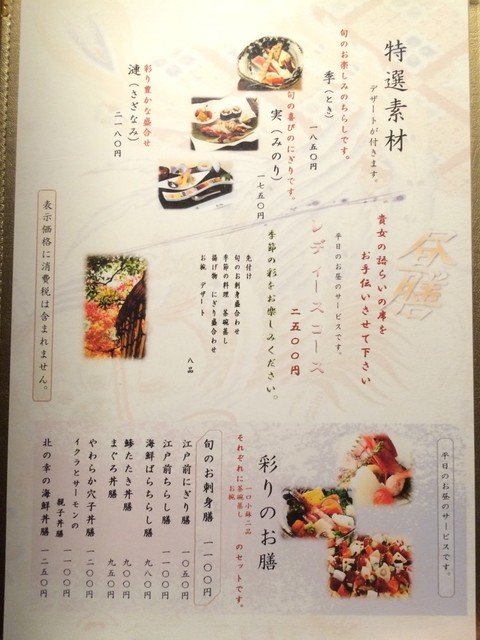 特選素材
デザートが付きます。
旬のお楽しみのちらしです。
季(とき)
一八五〇円
旬の喜びのにぎりです。
実(みのり)
一七五〇円
彩り豊かな盛合せ
漣(さざなみ)
二一八〇円
昼膳
貴女の語らいの席を
お手伝いさせて下さい
平日のお昼のサービスです。
レディースコース
二五〇〇円
季節の彩をお楽しみください。
先付け
旬のお刺身盛合わせ
季節の料理 茶碗蒸し
揚げ物 にぎり盛合わせ
お椀 デザート
八品
表示価格に消費税は含まれません。
平日のお昼のサービスです。
彩りのお膳
それぞれに
一口小鉢二品
茶碗蒸し
お椀
のセットです。
旬のお刺身膳 一一〇〇円
江戸前にぎり膳 一〇五〇円
江戸前ちらし膳 一一〇〇円
海鮮ばらちらし膳 九八〇円
鯵たたき丼膳 九〇〇円
まぐろ丼膳 九五〇円
やわらか穴子丼膳 一二〇〇円
イクラとサーモンの
親子丼膳 一一〇〇円
北の幸の海鮮丼膳 一二五〇円